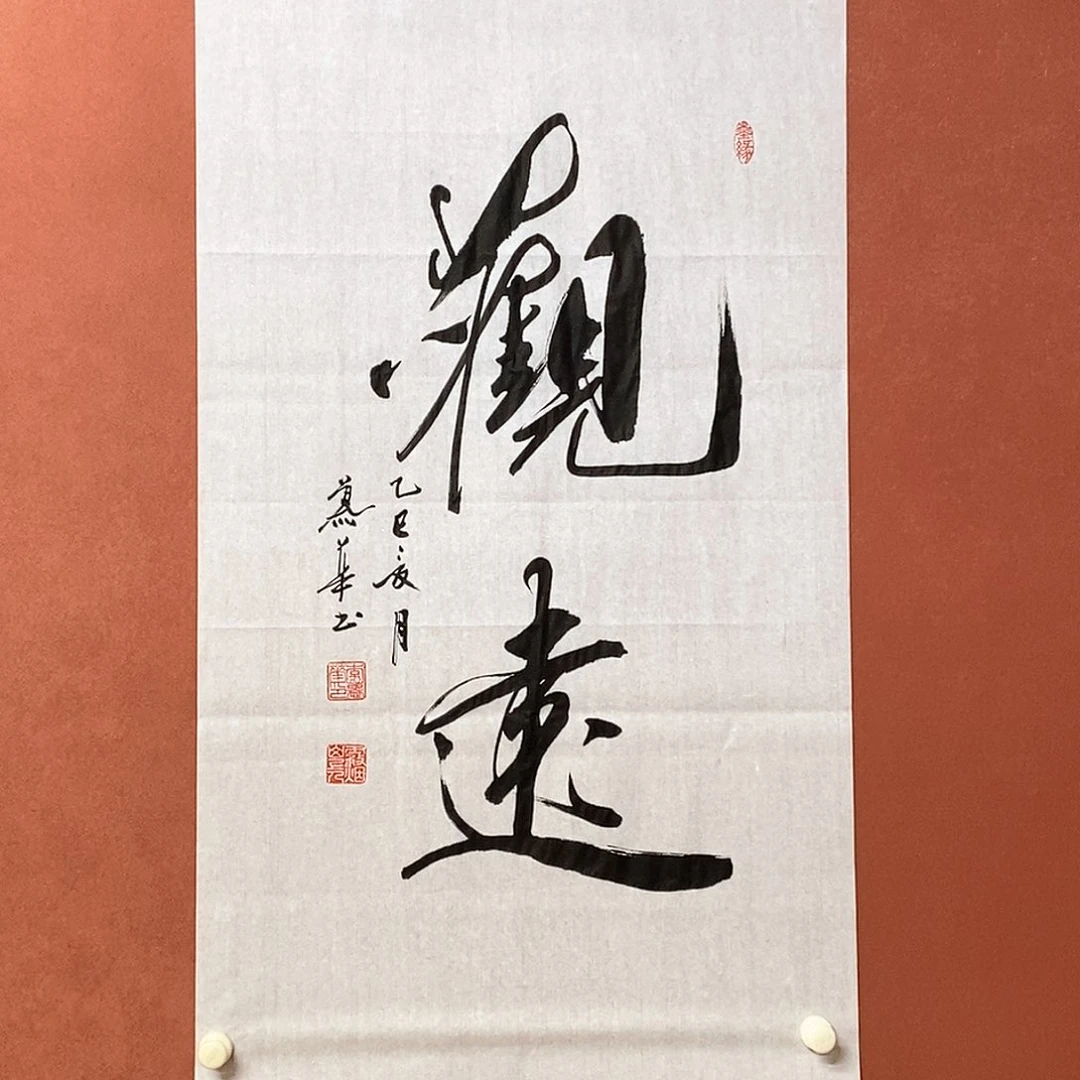 觀遠
乙巳夏月
慕華书